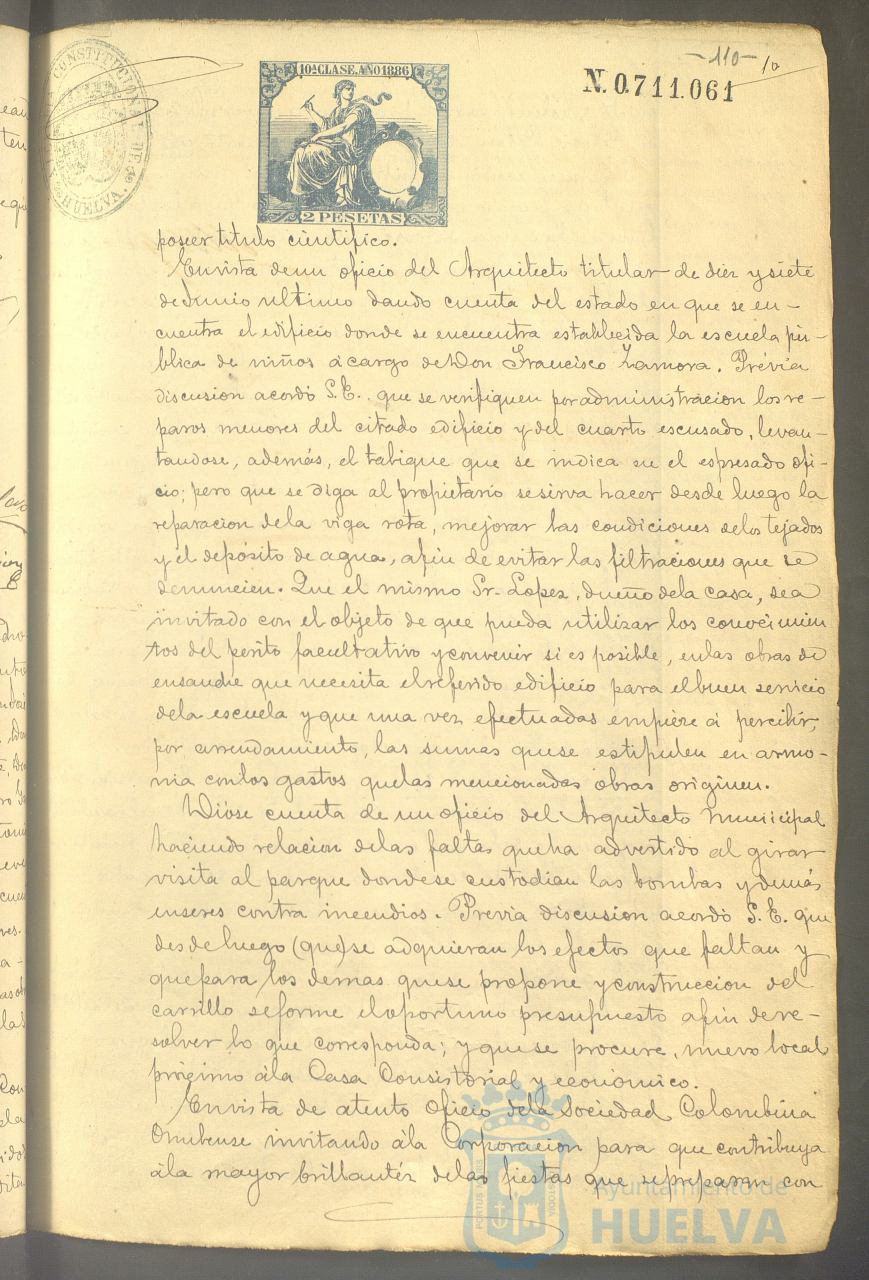 -110-
10
N. 0.711.061
10ª CLASE. AÑO 1886
2 PESETAS
CONSTITUCIONAL DE
HUELVA.
poseer titulo cientifico.
En vista de un oficio del Arquitecto titular de diez y siete
de Junio ultimo dando cuenta del estado en que se en-
cuentra el edificio donde se encuentra establecida la escuela pú-
blica de niños á cargo de Don Francisco Zamora. Prévia
discusion acordó S.E. que se verifiquen por administracion los re-
paros menores del citado edificio y del cuarto escusado, levan-
tandose, además, el tabique que se indica en el espresado ofi-
cio; pero que se diga al propietario se sirva hacer desde luego la
reparacion de la viga rota, mejorar las condiciones de los tejados
y el depósito de agua, afin de evitar las filtraciones que se
denuncien. Que el mismo Sr. Lopez, dueño de la casa, sea
invitado con el objeto de que pueda utilizar los conocimien
tos del perito facultativo y convenir si es posible, en las obras de
ensanche que necesita el referido edificio para el buen servicio
de la escuela y que una vez efectuadas empiece á percibir,
por arrendamiento, las sumas que se estipulen en armo-
nia con los gastos que las mencionadas obras originen.
Dióse cuenta de un oficio del Arquitecto Municipal
haciendo relacion de las faltas que ha advertido al girar
visita al parque donde se custodian las bombas y demás
enseres contra incendios. Prévia discusion acordó S.E. que
desde luego (que) se adquieran los efectos que faltan y
que para los demas que se propone y construccion del
carrillo se forme el oportuno presupuesto afin de re-
solver lo que corresponda; y que se procure, nuevo local
prócsimo á la Casa Consistorial y económico.
En vista de atento oficio de la Sociedad Colombina
Onubense invitando á la Corporacion para que contribuya
á la mayor brillantéz de las fiestas que se preparan con
PORTUS MARIS
CUSTODIA
Ayuntamiento de
HUELVA